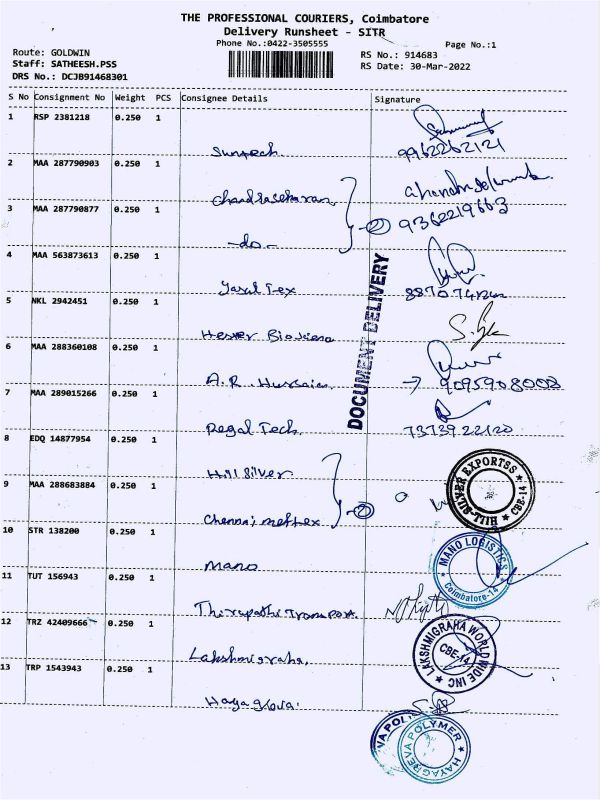 THE PROFESSIONAL COURIERS, Coimbatore
Delivery Runsheet - SITR
Phone No.:0422-3505555
Page No.:1
Route: GOLDWIN
Staff: SATHEESH.PSS
DRS No.: DCJB91468301
RS No.: 914683
RS Date: 30-Mar-2022
S No Consignment No Weight PCS Consignee Details Signature
1 RSP 2381218 0.250 1
Suntech 9962262121
2 MAA 287790903 0.250 1
Chandrasekaran
3 MAA 287790877 0.250 1
-do- 2 9362219663
4 MAA 563873613 0.250 1
Tex
5 NKL 2942451 0.250 1
Hester
6 MAA 288360108 0.250 1
A.R. Hussain → 9095908008
7 MAA 289015266 0.250 1
Regal Tech 7373922120
DOCUMENT DELIVERY
8 EDQ 14877954 0.250 1
Hill Silver
HILL-SILVER EXPORTSS
CBE-14
9 MAA 288683884 0.250 1
Chennai 2
10 STR 138200 0.250 1
Mano
MANO LOGISTICS
Coimbatore-14
11 TUT 156943 0.250 1
Thirupathi Transport
12 TRZ 42409666 0.250 1
Lakshmigraha
LAKSHMIGRAHA WORLDWIDE INC
CBE-14
13 TRP 1543943 0.250 1
Hayagreva
HAYAGREVA POLYMER
VA POL